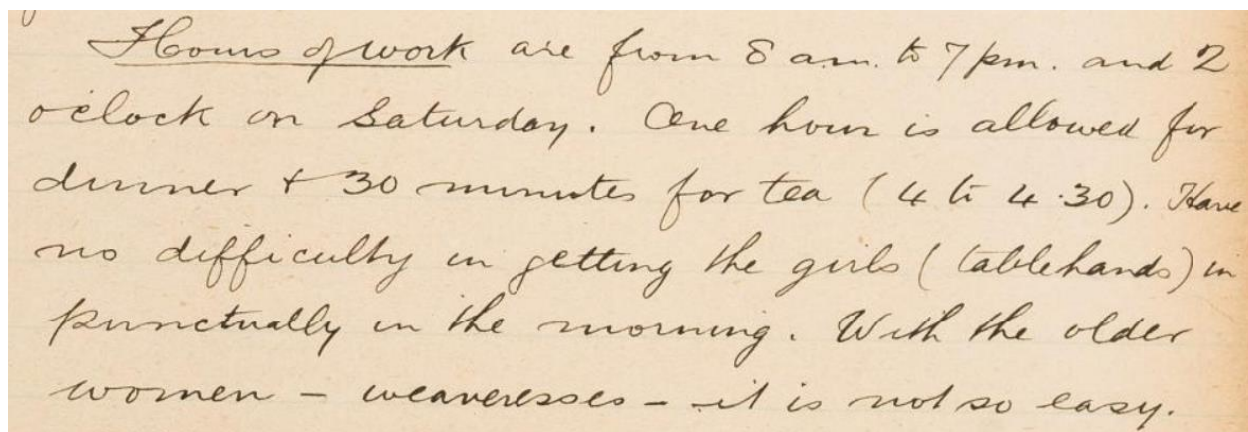 Hours of work are from 8 a.m. to 7 p.m. and 2
o'clock on Saturday. One hour is allowed for
dinner + 30 minutes for tea (4 to 4.30). Have
no difficulty in getting the girls (tablehands) in
punctually in the morning. With the older
women - weaveresses - it is not so easy.